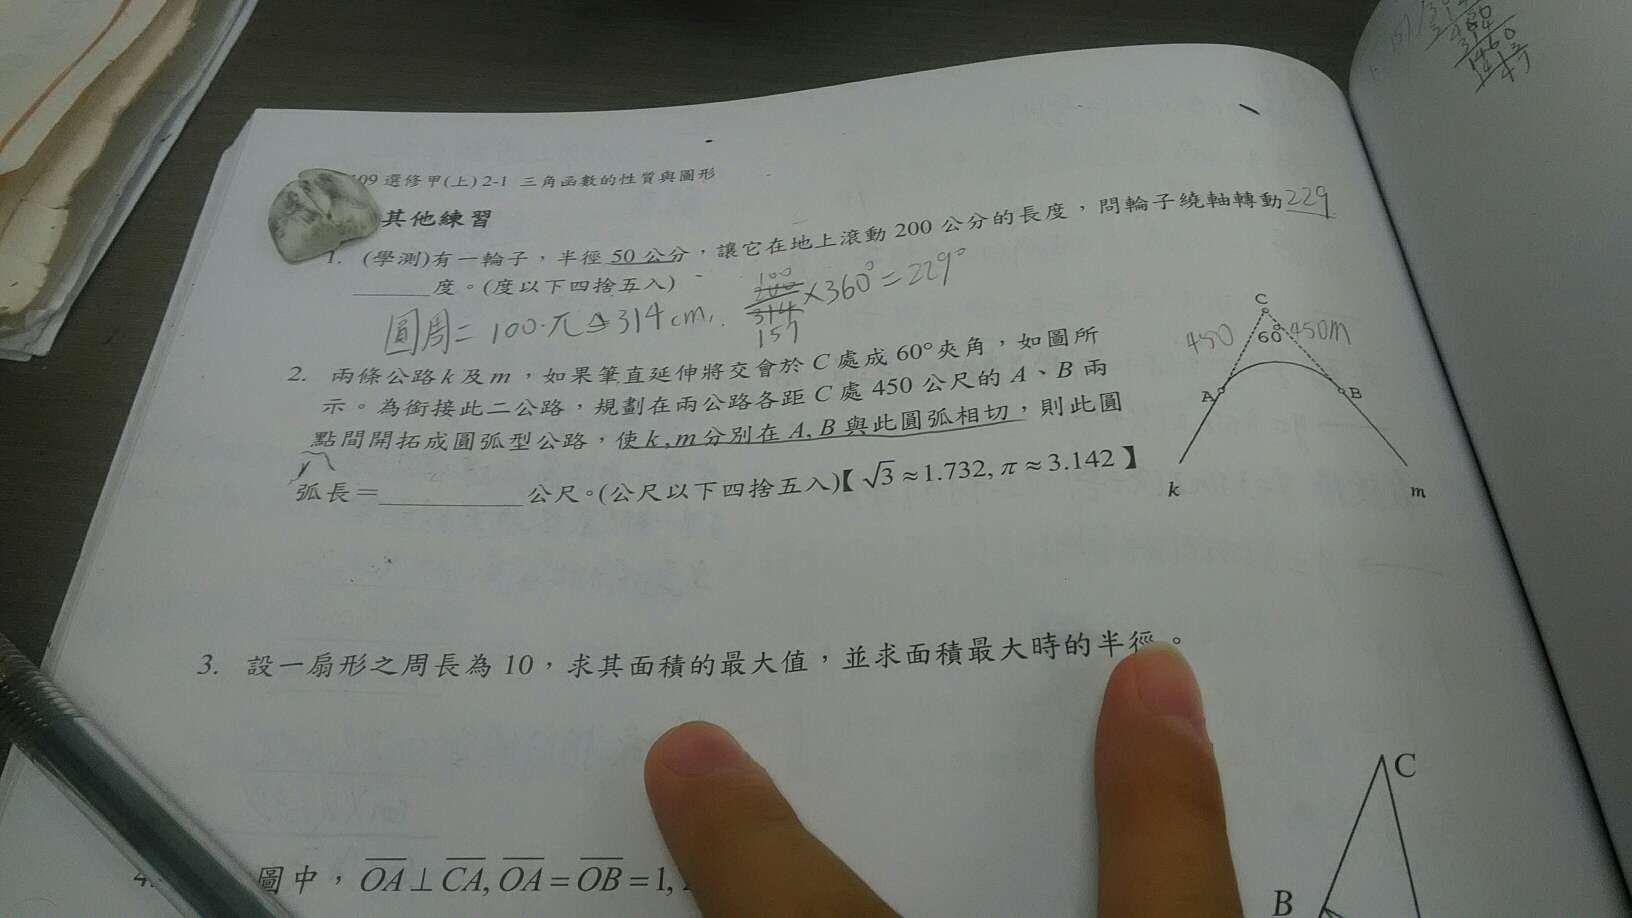 109 選修甲(上) 2-1 三角函數的性質與圖形
其他練習
1. (學測)有一輪子，半徑 50 公分，讓它在地上滾動 200 公分的長度，問輪子繞軸轉動 229
______度。(度以下四捨五入)
圓周= 100·π ≒ 314 cm,
100
200
314
157
×360°=229°
2. 兩條公路 k 及 m，如果筆直延伸將交會於 C 處成 60° 夾角，如圖所
示。為銜接此二公路，規劃在兩公路各距 C 處 450 公尺的 A、B 兩
點間開拓成圓弧型公路，使 k,m 分別在 A,B 與此圓弧相切，則此圓
弧長=__________公尺。(公尺以下四捨五入)【 √3≈1.732, π≈3.142 】
C
450
60°
450m
A
B
k
m
3. 設一扇形之周長為 10，求其面積的最大值，並求面積最大時的半徑。
4.
圖中，OA⊥CA, OA=OB=1,
C
B